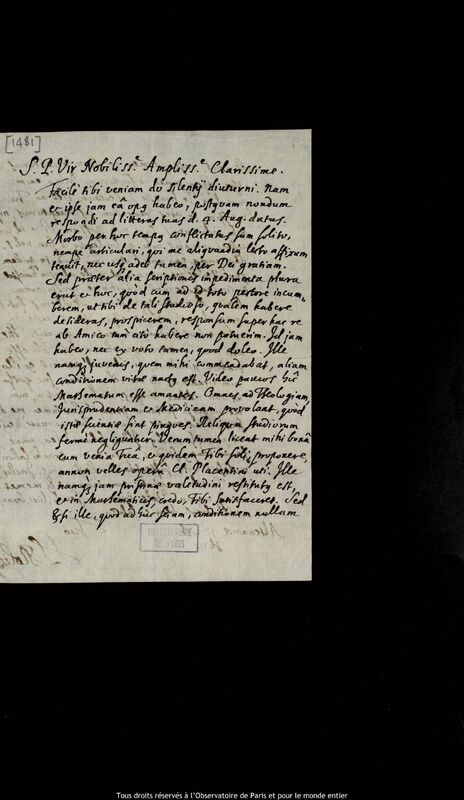 [1481]
S. P. Vir Nobiliss.e Ampliss.e Clarissime.
Facilè tibi veniam do silentij diuturni. nam
et ipse jam eâ opq habeo, postquam nondum
respondi ad litteras tuas d. 4. Aug. datas.
Morbo per hoc tempq conflictatus sum solito,
nempe articulari, qui me aliquandiu lecto affixum
tenuit, nec usq adeo tamen, per Dei gratiam.
Sed præter alia scriptionis impedimenta plura
erat et hoc, quod cum ad id toto pectore incum-
berem, ut tibi de tali studioso, qualem habere
desideras, prospicerem, responsum super hac re
ab Amico tam citò habere non potuerim. Id jam
habeo, nec ex voto tamen, quod doleo. Ille
namq juvenis, quem mihi commendabat, aliam
conditionem vitæ nactq est. Video paucos hîc
Mathematum esse amantes. Omnes ad Theologiam,
Jurisprudentiam et Medicinam provolant, quòd
istæ scientiæ sint pingues. Reliqua studiorum
fermè negliguntur. Verumtamen liceat mihi bonâ
cum veniâ Tuâ, et quidem Tibi soli, proponere,
annon velles operâ Cl. Placentini uti. Ille
namq jam pristinæ valetudini restitutq est,
et in Mathematicis, credo, Tibi satisfaceret. Sed
etsi ille, quod adhuc sciam, conditionem nullam
OBSERVATOIRE
DE PARIS
Tous droits réservés à l'Observatoire de Paris et pour le monde entier